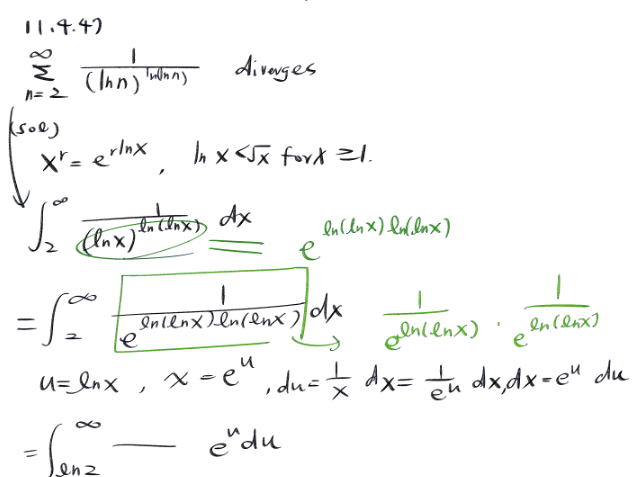 11.4.47
∞∑n=2 1/(ln n)^ln(ln n) diverges
(sol)
x^r = e^rlnx, ln x < √x for x ≥ 1.
∫_2^∞ 1/(ln x)^ln(ln x) dx e^ln(ln x) ln(ln x)
= ∫_2^∞ 1/e^ln(ln x) ln(ln x) dx 1/e^ln(ln x) · 1/e^ln(ln x)
u = ln x, x = e^u, du = 1/x dx = 1/e^u dx, dx = e^u du
= ∫_ln 2^∞ — e^u du